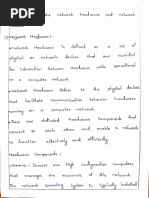 the network hardware and network
① Network Hardware:
• Network Hardware is defined as a set of
physical or network devices that are essential
for interaction between Hardware units operational
on a computer network.
• Network Hardware Refers to the physical devices
that facilitate communication between hardware
running on computer network.
• These are dedicated Hardware components that
connect to each other and enable a network
to function effectively and efficiently.
Hardware Components:
• Servers: Servers are High configuration computers
that manage the resources of this network.
The network operating system is typically installed